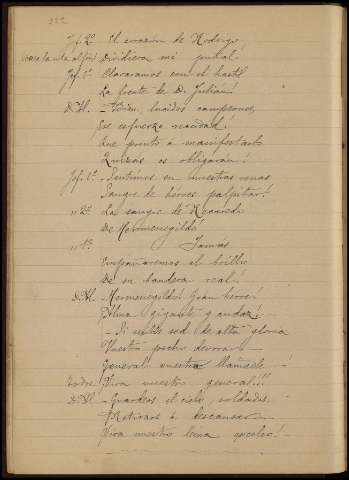 222
Jef. 2º El corazón de Rodrigo
Dividiera mi puñal!
Jef. 1º Clavaramos con el hastil
La frente de D. Julián!
D. H. – Bien, lucidos campeones,
Ese esfuerzo reservad!
Que pronto a manifestarlo
Quizas os obligarán!
Jef. 1º – Sentimos en nuestras venas
Sangre de héroes palpitar!
" 2º La sangre de Recaredo
De Hermenegildo
" 1º Jamás
Empañaremos el brillo
De su bandera real!
D. H. Hermenegildo! Gran héroe!
Alma gigante y audaz!
– Si noble sed de alta gloria
Vuestro pecho devora
General vuestro
Todos Viva nuestro general!!!
D. H. – Guardeos el cielo, soldados.
Retiraos a descansar
Viva nuestro